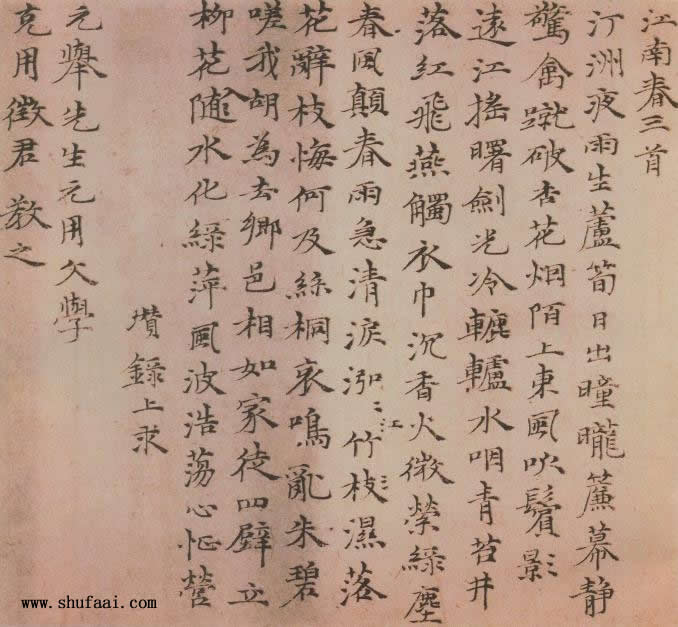 江南春三首
汀洲夜雨生蘆筍日出曈曨簾幕靜
驚禽蹴破杏花烟陌上東風吹鬢影
遠江搖曙劍光冷轆轤水咽青苔井
落紅飛燕觸衣巾沉香火微縈綠塵
春風顛春雨急清淚泓泓江竹枝濕落
花辭枝悔何及絲桐哀鳴亂朱碧
嗟我胡為去鄉邑相如家徒四壁立
柳花隨水化綠萍風波浩蕩心怔營
瓚錄上求
元舉先生元用文學
克用徵君教之
www.shufaai.com